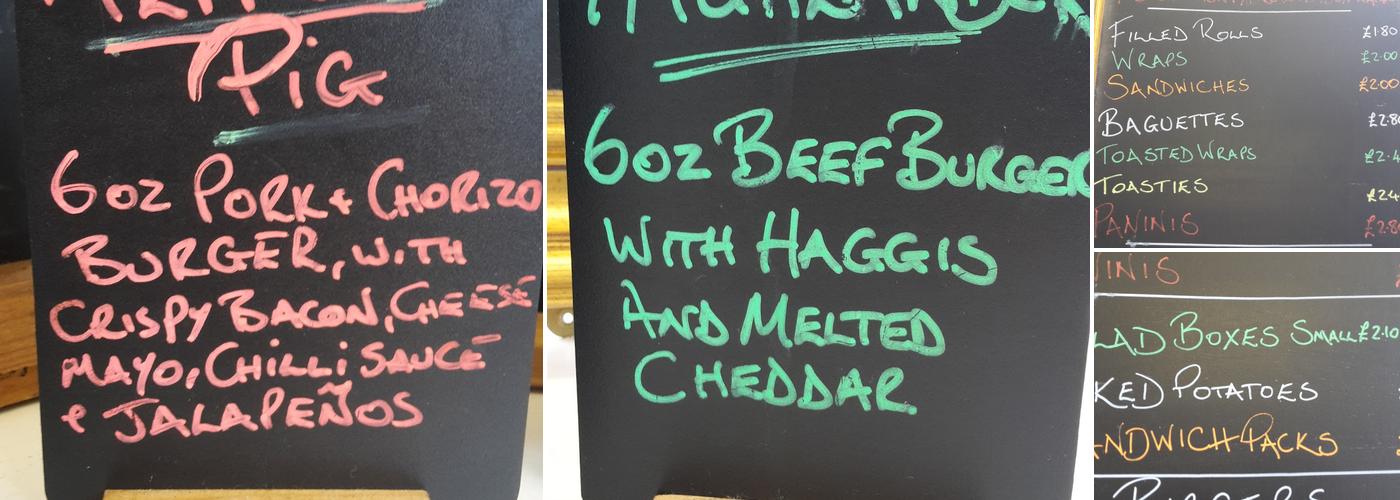 PIG
6oz PORK + CHORIZO
BURGER, WITH
CRISPY BACON, CHEESE
MAYO, CHILLI SAUCE
& JALAPEÑOS
6oz BEEF BURGER
WITH HAGGIS
AND MELTED
CHEDDAR
FILLED ROLLS £1.80
WRAPS £2.00
SANDWICHES £2.00
BAGUETTES £2.8
TOASTED WRAPS £2.4
TOASTIES £2.4
PANINIS £2.8
INIS
LAD BOXES SMALL £2.10
KED POTATOES
NDWICH PACKS
BURGERS